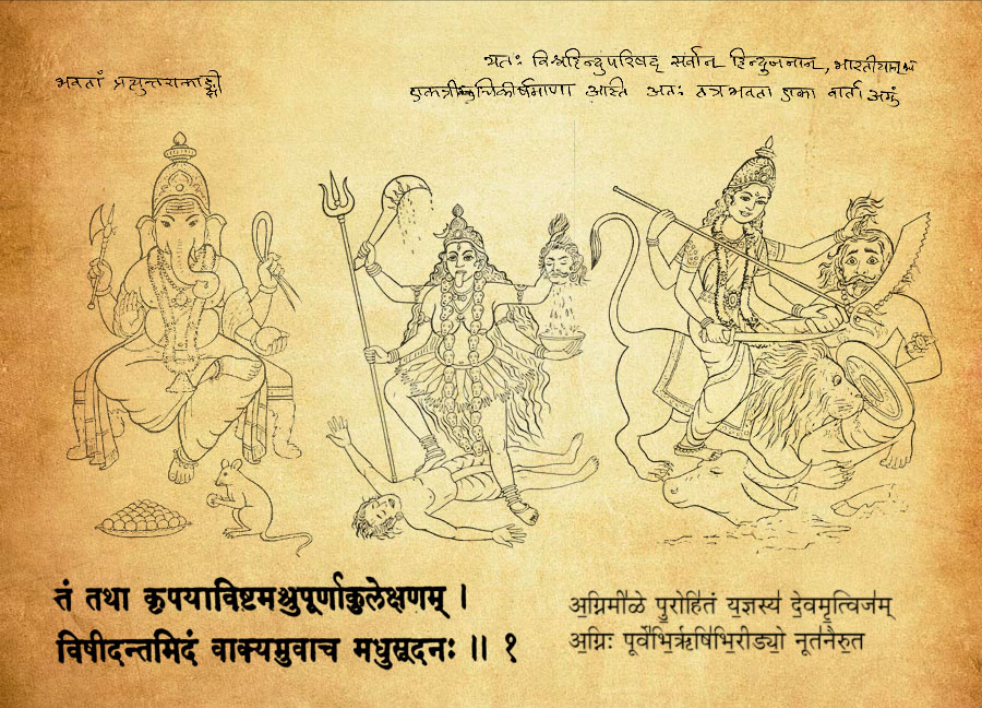 भवतां प्रत्युत्तराकाङ्क्षी
यतः विश्वहिन्दुपरिषद् सर्वान् हिन्दुजनान्, भारतीयान्
आस्ति अतः तत्रभवता एका वार्ता
तं तथा कृपयाविष्टमश्रुपूर्णाकुलेक्षणम् ।
विषीदन्तमिदं वाक्यमुवाच मधुसूदनः ॥ १
अ॒ग्निमी॑ळे पु॒रोहि॑तं य॒ज्ञस्य॑ दे॒वमृ॒त्विज॑म्
अ॒ग्निः पूर्वे॑भि॒रृषि॑भि॒रीड्यो॒ नूत॑नैरु॒त